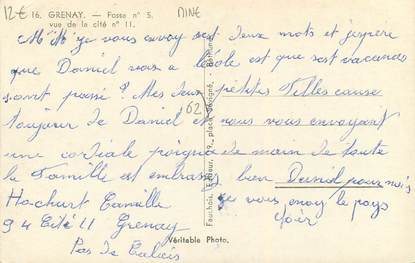 12€
MINE
16. GRENAY. — Fosse n° 5.
vue de la cité n° 11.
M M je vous envoy set deux mots et j'espere
que Daniel vas a lecole est que set vacance
sont passé ? Mes deux petites Filles cause
62
toujour de Daniel et nous vous envoyant
une cordiale poigne de main de toute
la Famille et embrass bien Daniel pour moi
Hochart Camille
je vous envoy le pays
94 Cité 11 Grenay
Pas de Calais
Fauchois, Editeur, 19, place Sévigné - Béthune
Véritable Photo.